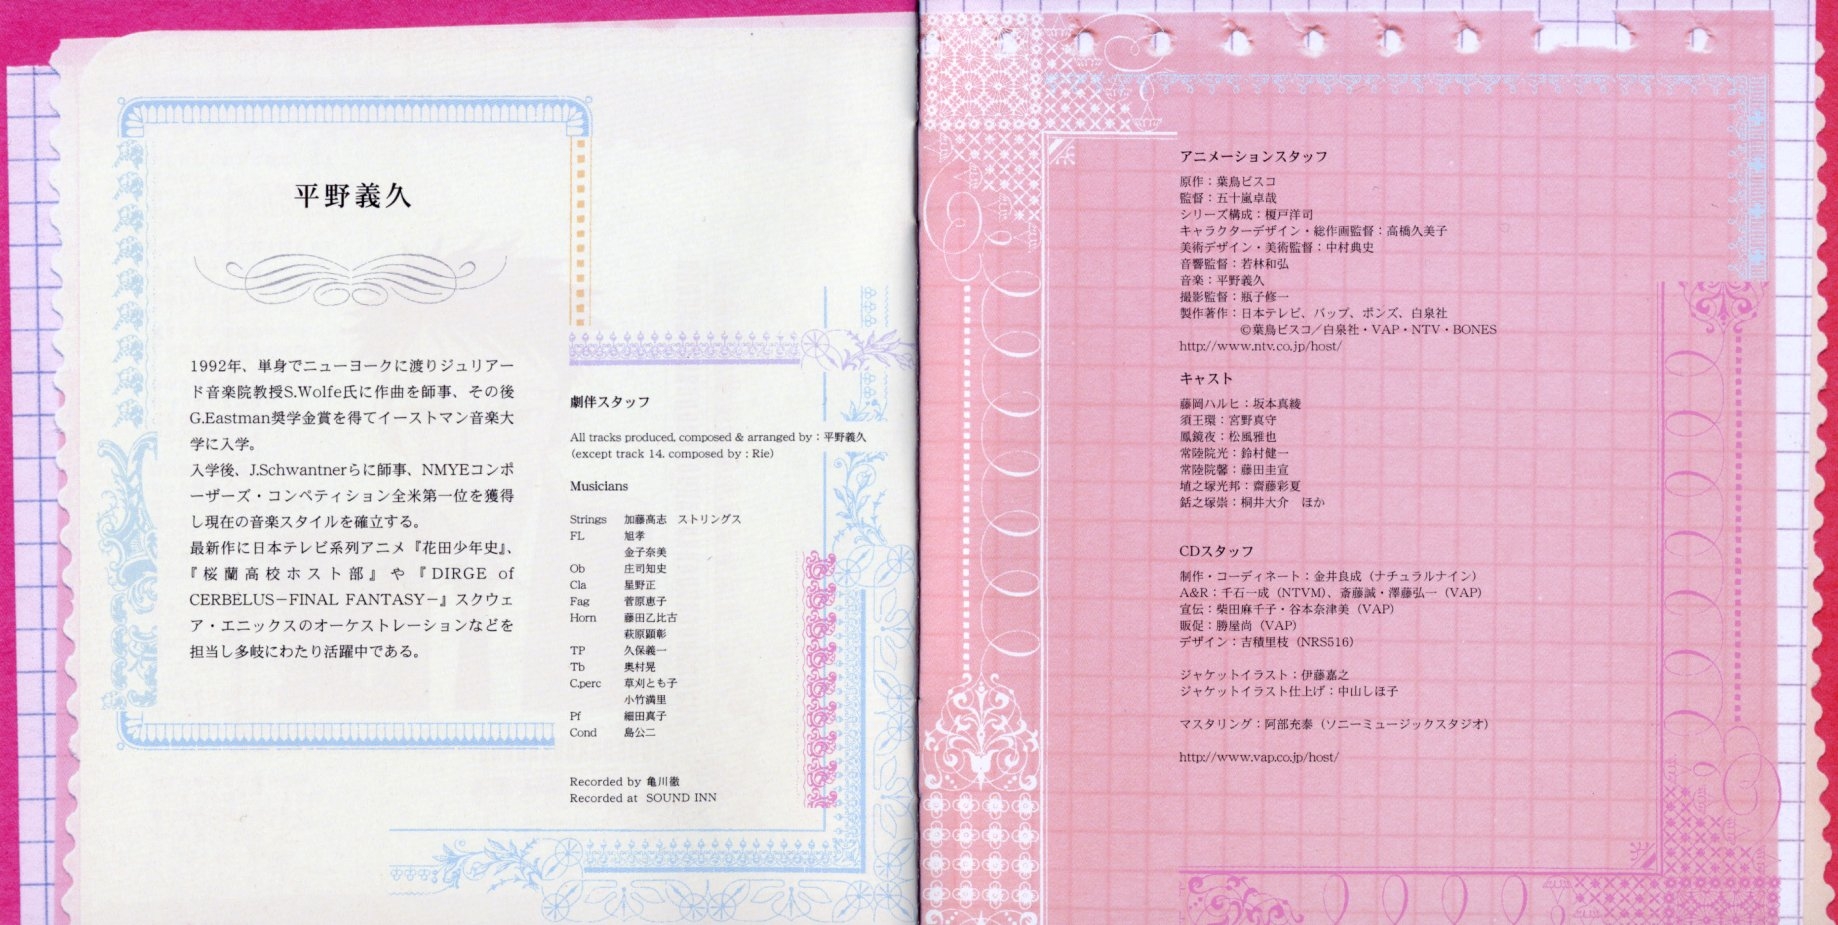 平野義久
1992年、単身でニューヨークに渡りジュリアー
ド音楽院教授S.Wolfe氏に作曲を師事、その後
G.Eastman奨学金賞を得てイーストマン音楽大
学に入学。
入学後、J.Schwantnerらに師事、NMYEコンポ
ーザーズ・コンペティション全米第一位を獲得
し現在の音楽スタイルを確立する。
最新作に日本テレビ系列アニメ『花田少年史』、
『桜蘭高校ホスト部』や『DIRGE of
CERBELUS－FINAL FANTASY－』スクウェ
ア・エニックスのオーケストレーションなどを
担当し多岐にわたり活躍中である。
劇伴スタッフ
All tracks produced, composed & arranged by：平野義久
(except track 14. composed by : Rie)
Musicians
Strings 加藤高志 ストリングス
FL 旭孝
金子奈美
Ob 庄司知史
Cla 星野正
Fag 菅原恵子
Horn 藤田乙比古
萩原顕彰
TP 久保義一
Tb 奥村晃
C.perc 草刈とも子
小竹満里
Pf 細田真子
Cond 島公二
Recorded by 亀川徹
Recorded at SOUND INN
アニメーションスタッフ
原作：葉鳥ビスコ
監督：五十嵐卓哉
シリーズ構成：榎戸洋司
キャラクターデザイン・総作画監督：高橋久美子
美術デザイン・美術監督：中村典史
音響監督：若林和弘
音楽：平野義久
撮影監督：瓶子修一
製作著作：日本テレビ、バップ、ボンズ、白泉社
©葉鳥ビスコ／白泉社・VAP・NTV・BONES
http://www.ntv.co.jp/host/
キャスト
藤岡ハルヒ：坂本真綾
須王環：宮野真守
鳳鏡夜：松風雅也
常陸院光：鈴村健一
常陸院馨：藤田圭宣
埴之塚光邦：齋藤彩夏
銛之塚崇：桐井大介 ほか
CDスタッフ
制作・コーディネート：金井良成（ナチュラルナイン）
A&R：千石一成（NTVM）、斎藤誠・澤藤弘一（VAP）
宣伝：柴田麻千子・谷本奈津美（VAP）
販促：勝屋尚（VAP）
デザイン：吉積里枝（NRS516）
ジャケットイラスト：伊藤嘉之
ジャケットイラスト仕上げ：中山しほ子
マスタリング：阿部充泰（ソニーミュージックスタジオ）
http://www.vap.co.jp/host/